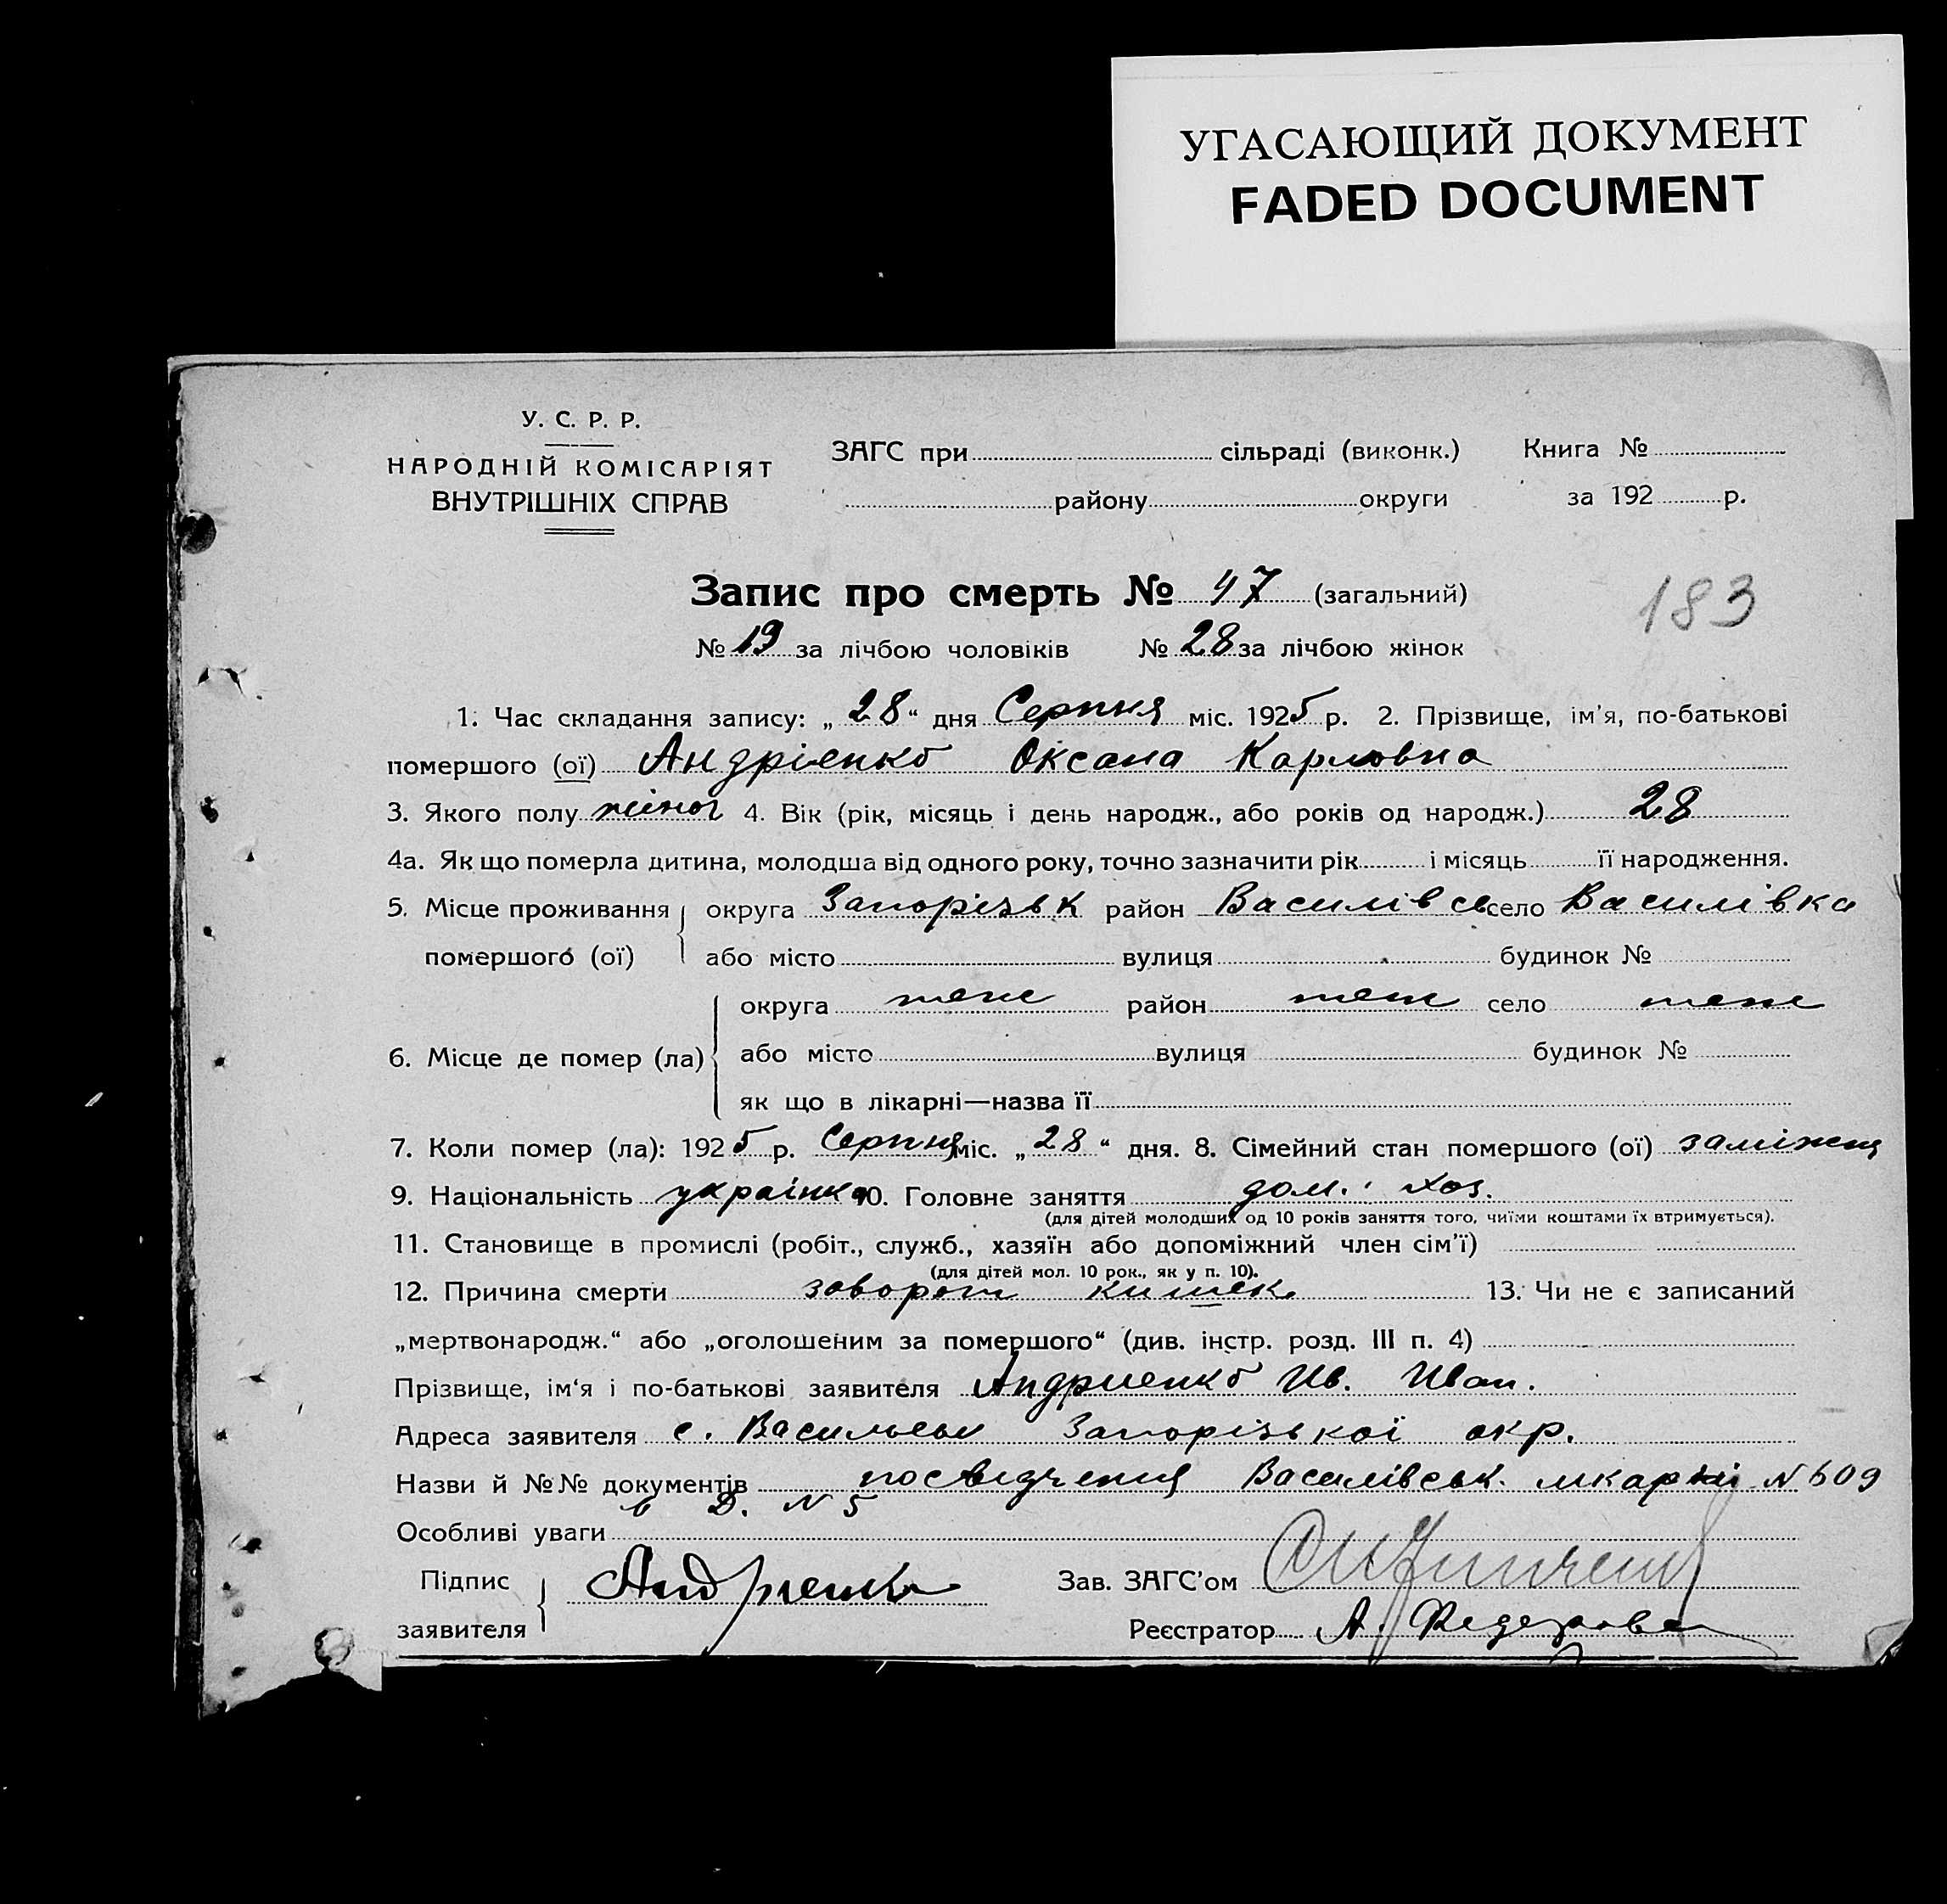 УГАСАЮЩИЙ ДОКУМЕНТ
FADED DOCUMENT
У. С. Р. Р.
НАРОДНІЙ КОМІСАРІЯТ
ВНУТРІШНІХ СПРАВ
ЗАГС при сільраді (виконк.) Книга №
району округи за 192 р.
Запис про смерть № 47 (загальний)
183
№ 19 за лічбою чоловіків № 28 за лічбою жінок
1. Час складання запису: „ 28 “ дня Серпня міс. 1925 р. 2. Прізвище, ім'я, по-батькові
помершого (ої) Андріенко Оксана Карловна
3. Якого полу жіноч 4. Вік (рік, місяць і день народж., або років од народж.) 28
4а. Як що померла дитина, молодша від одного року, точно зазначити рік і місяць її народження.
5. Місце проживання округа Запорізьк район Василівсь село Василівка
помершого (ої) або місто вулиця будинок №
округа теж район теж село теж
6. Місце де помер (ла) або місто вулиця будинок №
як що в лікарні—назва її
7. Коли помер (ла): 1925 р. Серпня міс. „ 28 “ дня. 8. Сімейний стан помершого (ої) заміжня
9. Національність українка 10. Головне заняття дом. хоз.
(для дітей молодших од 10 років заняття того, чиїми коштами їх втримується).
11. Становище в промислі (робіт., служб., хазяїн або допоміжний член сім'ї)
(для дітей мол. 10 рок., як у п. 10).
12. Причина смерти заворот кишек 13. Чи не є записаний
„мертвонародж.“ або „оголошеним за помершого“ (див. інстр. розд. III п. 4)
Прізвище, ім'я і по-батькові заявителя Андриенко Ив. Иван.
Адреса заявителя с. Запорізької окр.
Назви й №№ документів посвидчения Василівськ. лікарні N 609
Д. N 5
Особливі уваги
Підпис Андриенко Зав. ЗАГС'ом
заявителя Реєстратор А. Федорова